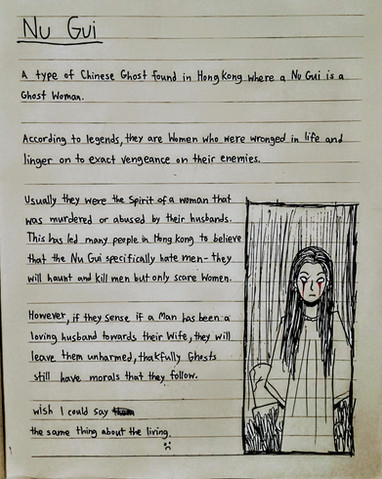 Nu Gui
A type of Chinese Ghost found in Hong Kong where a Nu Gui is a
Ghost Woman.
According to legends, they are Women who were wronged in life and
linger on to exact vengeance on their enemies.
Usually they were the Spirit of a woman that
was murdered or abused by their husbands.
This has led many people in Hong Kong to believe
that the Nu Gui specifically hate men- they
will haunt and kill men but only scare Women.
However, if they sense if a Man has been a
loving husband towards their Wife, they will
leave them unharmed, thakfully Ghosts
still have morals that they follow.
wish I could say
the same thing about the living.